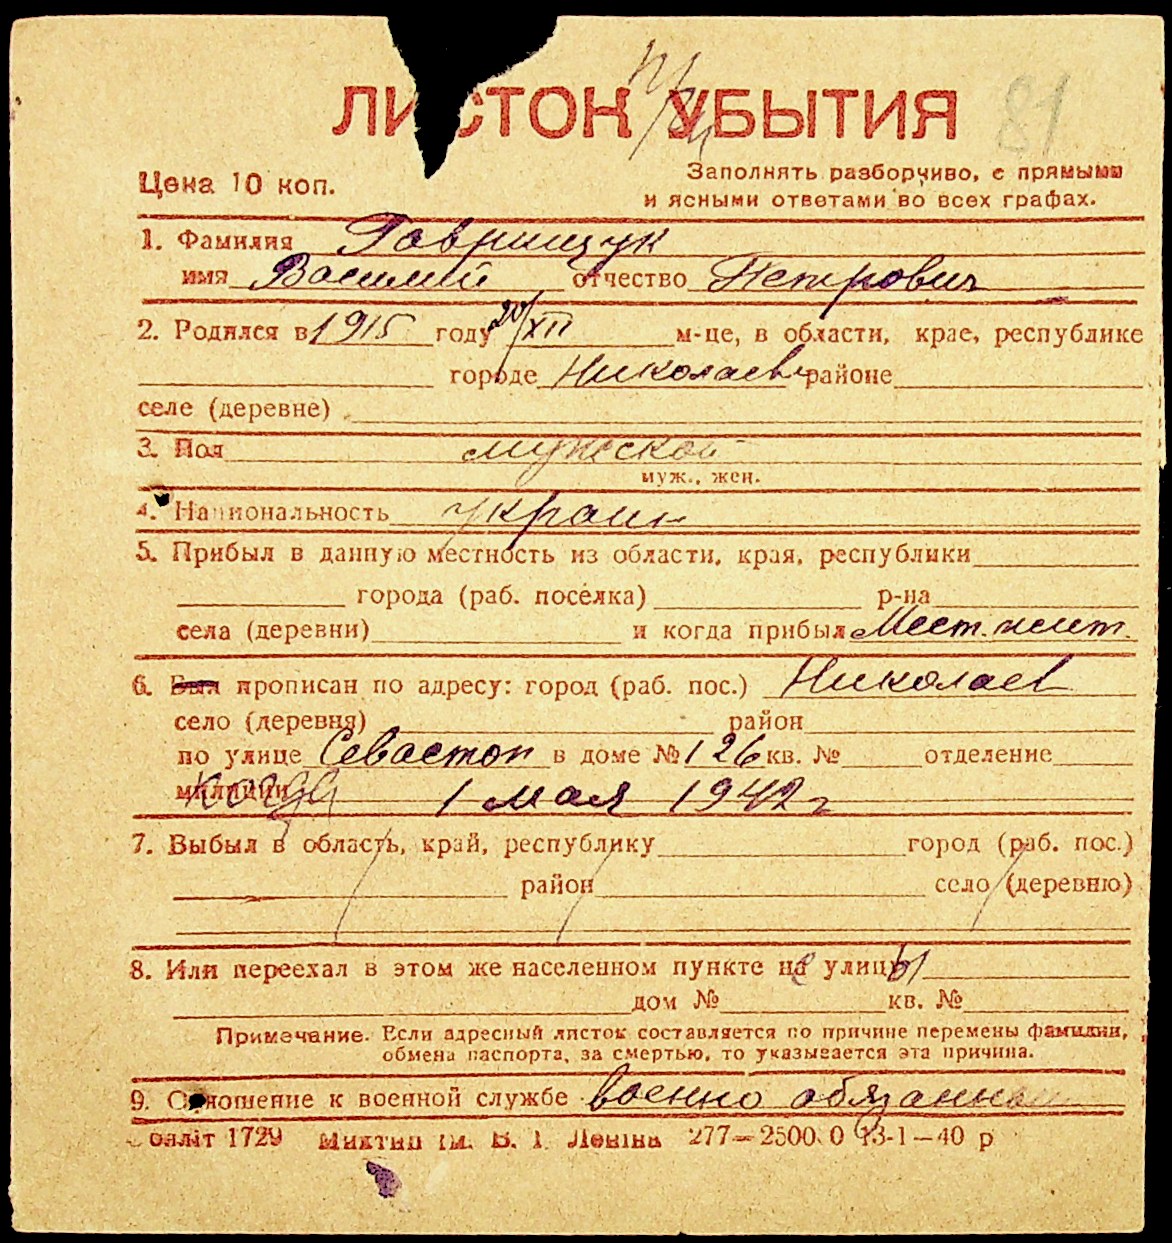 ЛИСТОК УБЫТИЯ
81
Цена 10 коп.
Заполнять разборчиво, с прямыми
и ясными ответами во всех графах.
1. Фамилия Гаврищук
имя Василий отчество Петрович
2. Родился в 1915 году 20/XII м-це, в области, крае, республике
городе Николаев районе
селе (деревне)
3. Пол мужской
муж., жен.
4. Национальность украин
5. Прибыл в данную местность из области, края, республики
города (раб. посёлка) р-на
села (деревни) и когда прибыл Мест. жит.
6. Был прописан по адресу: город (раб. пос.) Николаев
село (деревня) район
по улице Севастоп в доме № 126 кв. № отделение
милиции когда 1 мая 1942 г
7. Выбыл в область, край, республику город (раб. пос.)
район село (деревню)
8. Или переехал в этом же населенном пункте с улицы
дом № кв. №
Примечание. Если адресный листок составляется по причине перемены фамилии,
обмена паспорта, за смертью, то указывается эта причина.
9. Отношение к военной службе военно обязанный
1729 ім. В. І. Леніна 277—2500 0 13-1—40 р